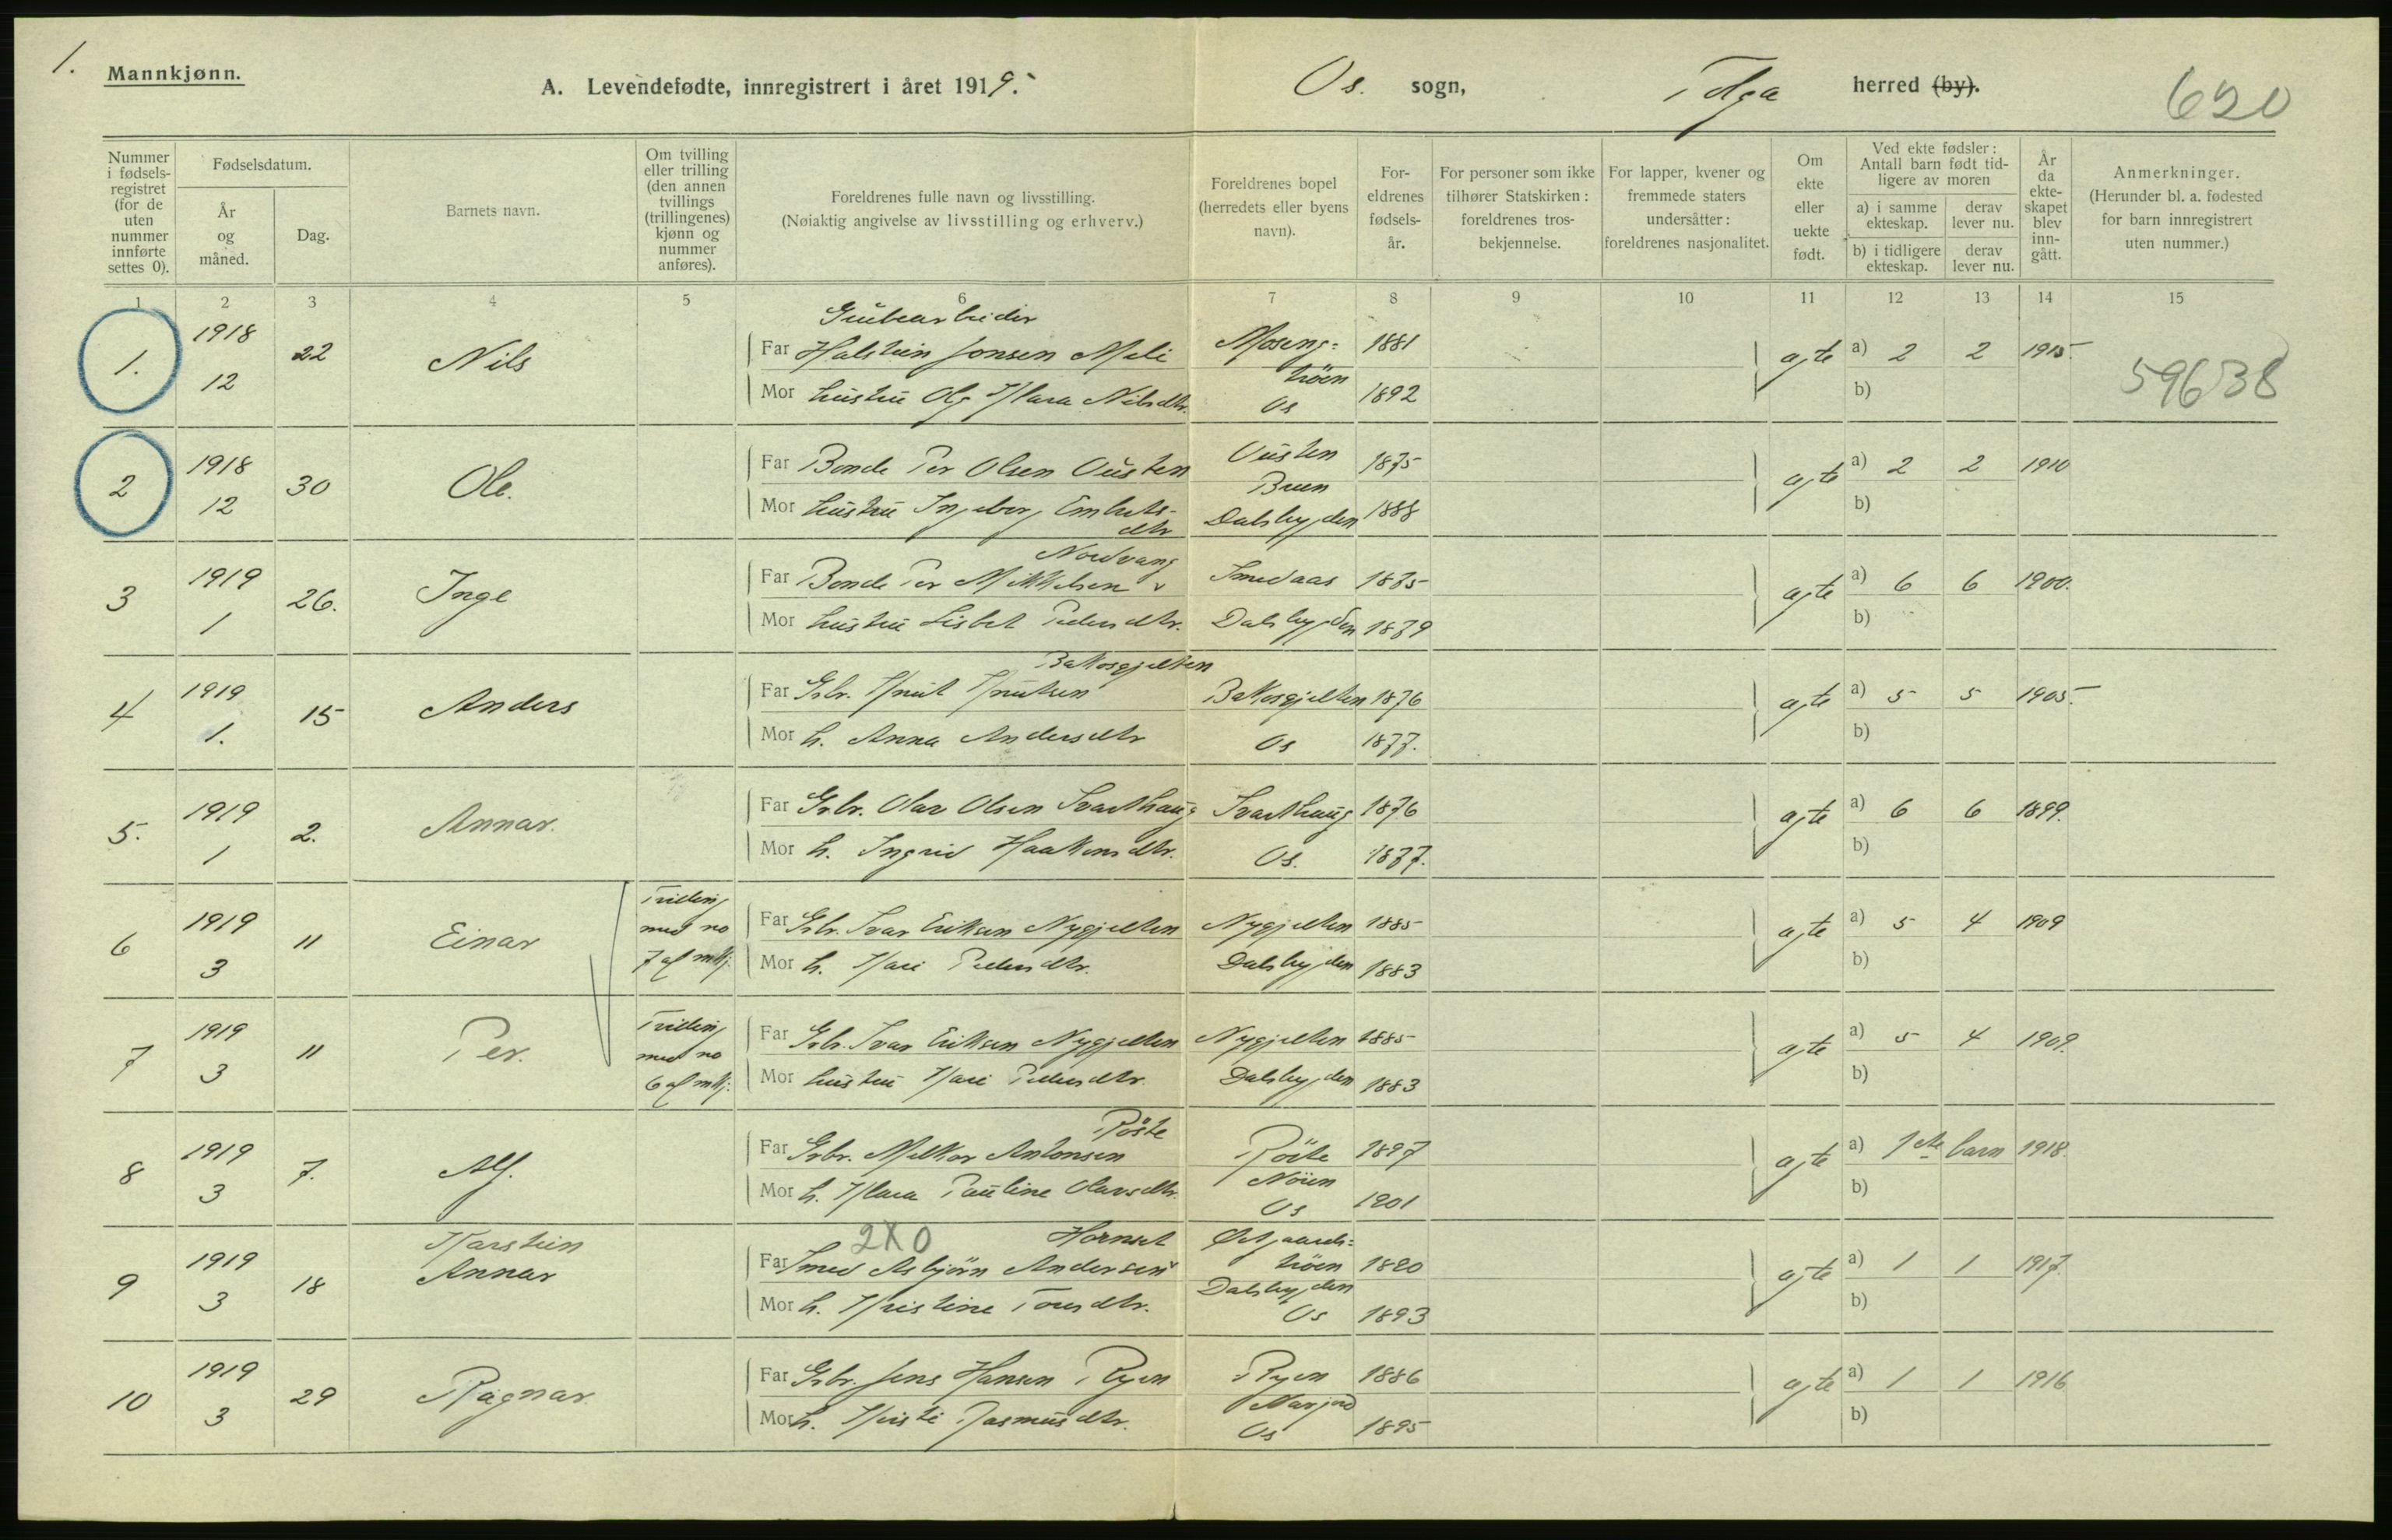 1.
Mannkjønn.
A. Levendefødte, innregistrert i året 1919.
Os. sogn,
Tolga herred (by).
620
Nummer i fødsels-registret (for de uten nummer innførte settes 0).
Fødselsdatum.
År og måned.
Dag.
Barnets navn.
Om tvilling eller trilling (den annen tvillings (trillingenes) kjønn og nummer anføres).
Foreldrenes fulle navn og livsstilling.
(Nøiaktig angivelse av livsstilling og erhverv.)
Foreldrenes bopel (herredets eller byens navn).
For-eldrenes fødsels-år.
For personer som ikke tilhører Statskirken: foreldrenes tros-bekjennelse.
For lapper, kvener og fremmede staters undersåtter: foreldrenes nasjonalitet.
Om ekte eller uekte født.
Ved ekte fødsler: Antall barn født tid-ligere av moren
a) i samme ekteskap.
derav lever nu.
b) i tidligere ekteskap.
derav lever nu.
År da ekte-skapet blev inn-gått.
Anmerkninger.
(Herunder bl. a. fødested for barn innregistrert uten nummer.)
1 2 3 4 5 6 7 8 9 10 11 12 13 14 15
Grubearbeider
1. 1918 12 22 Nils
Far Halstein Jonsen Meli Moseng= 1881
Mor hustru Olg Klara Nilsdtr. tröen Os 1892
ægte a) 2 2 1915
b)
59638
2 1918 12 30 Ole.
Far Bonde Per Olsen Ousten Ousten 1875
Mor hustru Ingeborg Embretsdtr Bruen Dalsbygden 1888
ægte a) 2 2 1910
b)
3 1919 1 26. Inge
Nordvang
Far Bonde Per Mikkelsen v Smedaas 1875
Mor hustru Lisbet Pedersdtr. Dalsbygden 1879
ægte a) 6 6 1900.
b)
4 1919 1. 15 Anders
Bakosgjelten
Far Grbr. Knut Knutsen Bakosgjelten 1876
Mor h. Anna Andersdtr Os 1877.
ægte a) 5 5 1905
b)
5. 1919 1 2. Annar.
Far Grbr. Olav Olsen Svarthaug Svarthaug 1876
Mor h. Ingrid Haakensdtr. Os. 1877.
ægte a) 6 6 1899.
b)
6 1919 3 11 Einar
Tvilling med no 7 af mkj.
Far Grbr. Ivar Eriksen Nygjelten Nygjelten 1885
Mor h. Kari Pedersdtr. Dalsbygden 1883
ægte a) 5 4 1909
b)
7 1919 3 11 Per.
Tvilling med no 6 af mkj.
Far Grbr. Ivar Eriksen Nygjelten Nygjelten 1885
Mor hustru Kari Pedersdtr. Dalsbygden 1883
ægte a) 5 4 1909.
b)
8 1919 3 7. Alf.
Röste
Far Grbr. Melkor Antonsen Röste 1897
Mor h. Klara Pauline Olavsdtr. Nören Os 1901
ægte a) 1ste barn 1918.
b)
9 1919 3 18 Karstein Annar
2X0 Hornset
Far Smed Asbjörn Andersen Östgaards= tröen 1890
Mor h. Kristine Toresdtr. Dalsbygden Os 1893
ægte a) 1 1 1917.
b)
10 1919 3 29 Ragnar.
Far Grbr. Jens Hansen Ryen Ryen 1886
Mor h. Kristi Rasmusdtr. Narjord Os 1895
ægte a) 1 1 1916
b)